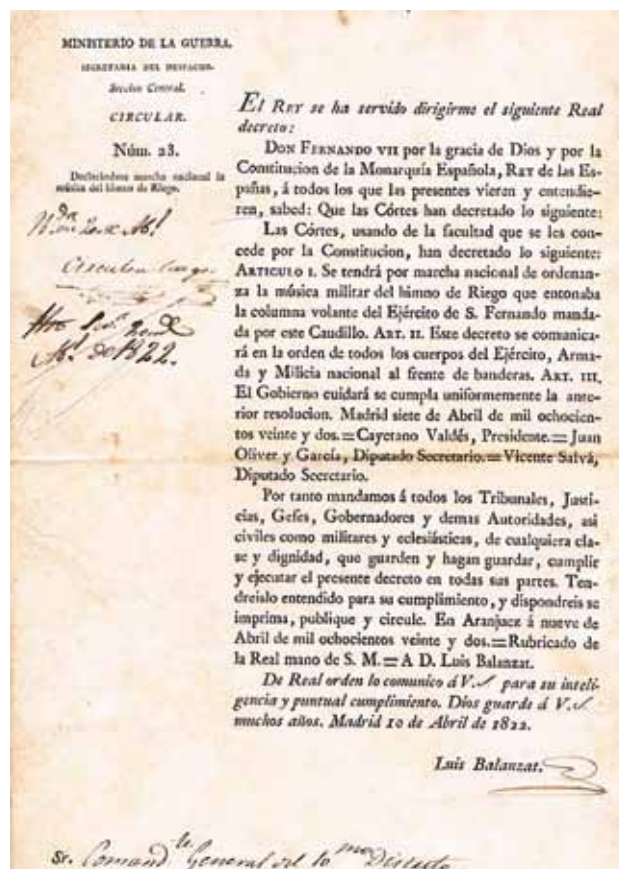 MINISTERIO DE LA GUERRA.
SECRETARIA DEL DESPACHO.
Seccion Central.
CIRCULAR.
Núm. 28.
Declarándose marcha nacional la
música del himno de Riego.
Circular
de 1822.
El REY se ha servido dirigirme el siguiente Real
decreto:
DON FERNANDO VII por la gracia de Dios y por la
Constitucion de la Monarquía Española, REY de las Es-
pañas, á todos los que las presentes vieren y entendie-
ren, sabed: Que las Córtes han decretado lo siguiente:
Las Córtes, usando de la facultad que se les con-
cede por la Constitucion, han decretado lo siguiente:
ARTICULO I. Se tendrá por marcha nacional de ordenan-
za la música militar del himno de Riego que entonaba
la columna volante del Ejército de S. Fernando manda-
da por este Caudillo. ART. II. Este decreto se comunica-
rá en la orden de todos los cuerpos del Ejército, Arma-
da y Milicia nacional al frente de banderas. ART. III.
El Gobierno cuidará se cumpla uniformemente la ante-
rior resolucion. Madrid siete de Abril de mil ochocien-
tos veinte y dos.=Cayetano Valdés, Presidente.=Juan
Oliver y García, Diputado Secretario.=Vicente Salvá,
Diputado Secretario.
Por tanto mandamos á todos los Tribunales, Justi-
cias, Gefes, Gobernadores y demas Autoridades, asi
civiles como militares y eclesiásticas, de cualquiera cla-
se y dignidad, que guarden y hagan guardar, cumplir
y ejecutar el presente decreto en todas sus partes. Ten-
dreislo entendido para su cumplimiento, y dispondreis se
imprima, publique y circule. En Aranjuez á nueve de
Abril de mil ochocientos veinte y dos.=Rubricado de
la Real mano de S. M.=A D. Luis Balanzat.
De Real orden lo comunico á V. para su inteli-
gencia y puntual cumplimiento. Dios guarde á V.
muchos años. Madrid 10 de Abril de 1822.
Luis Balanzat.
Sr. Comand.te General del 10.mo Distrito